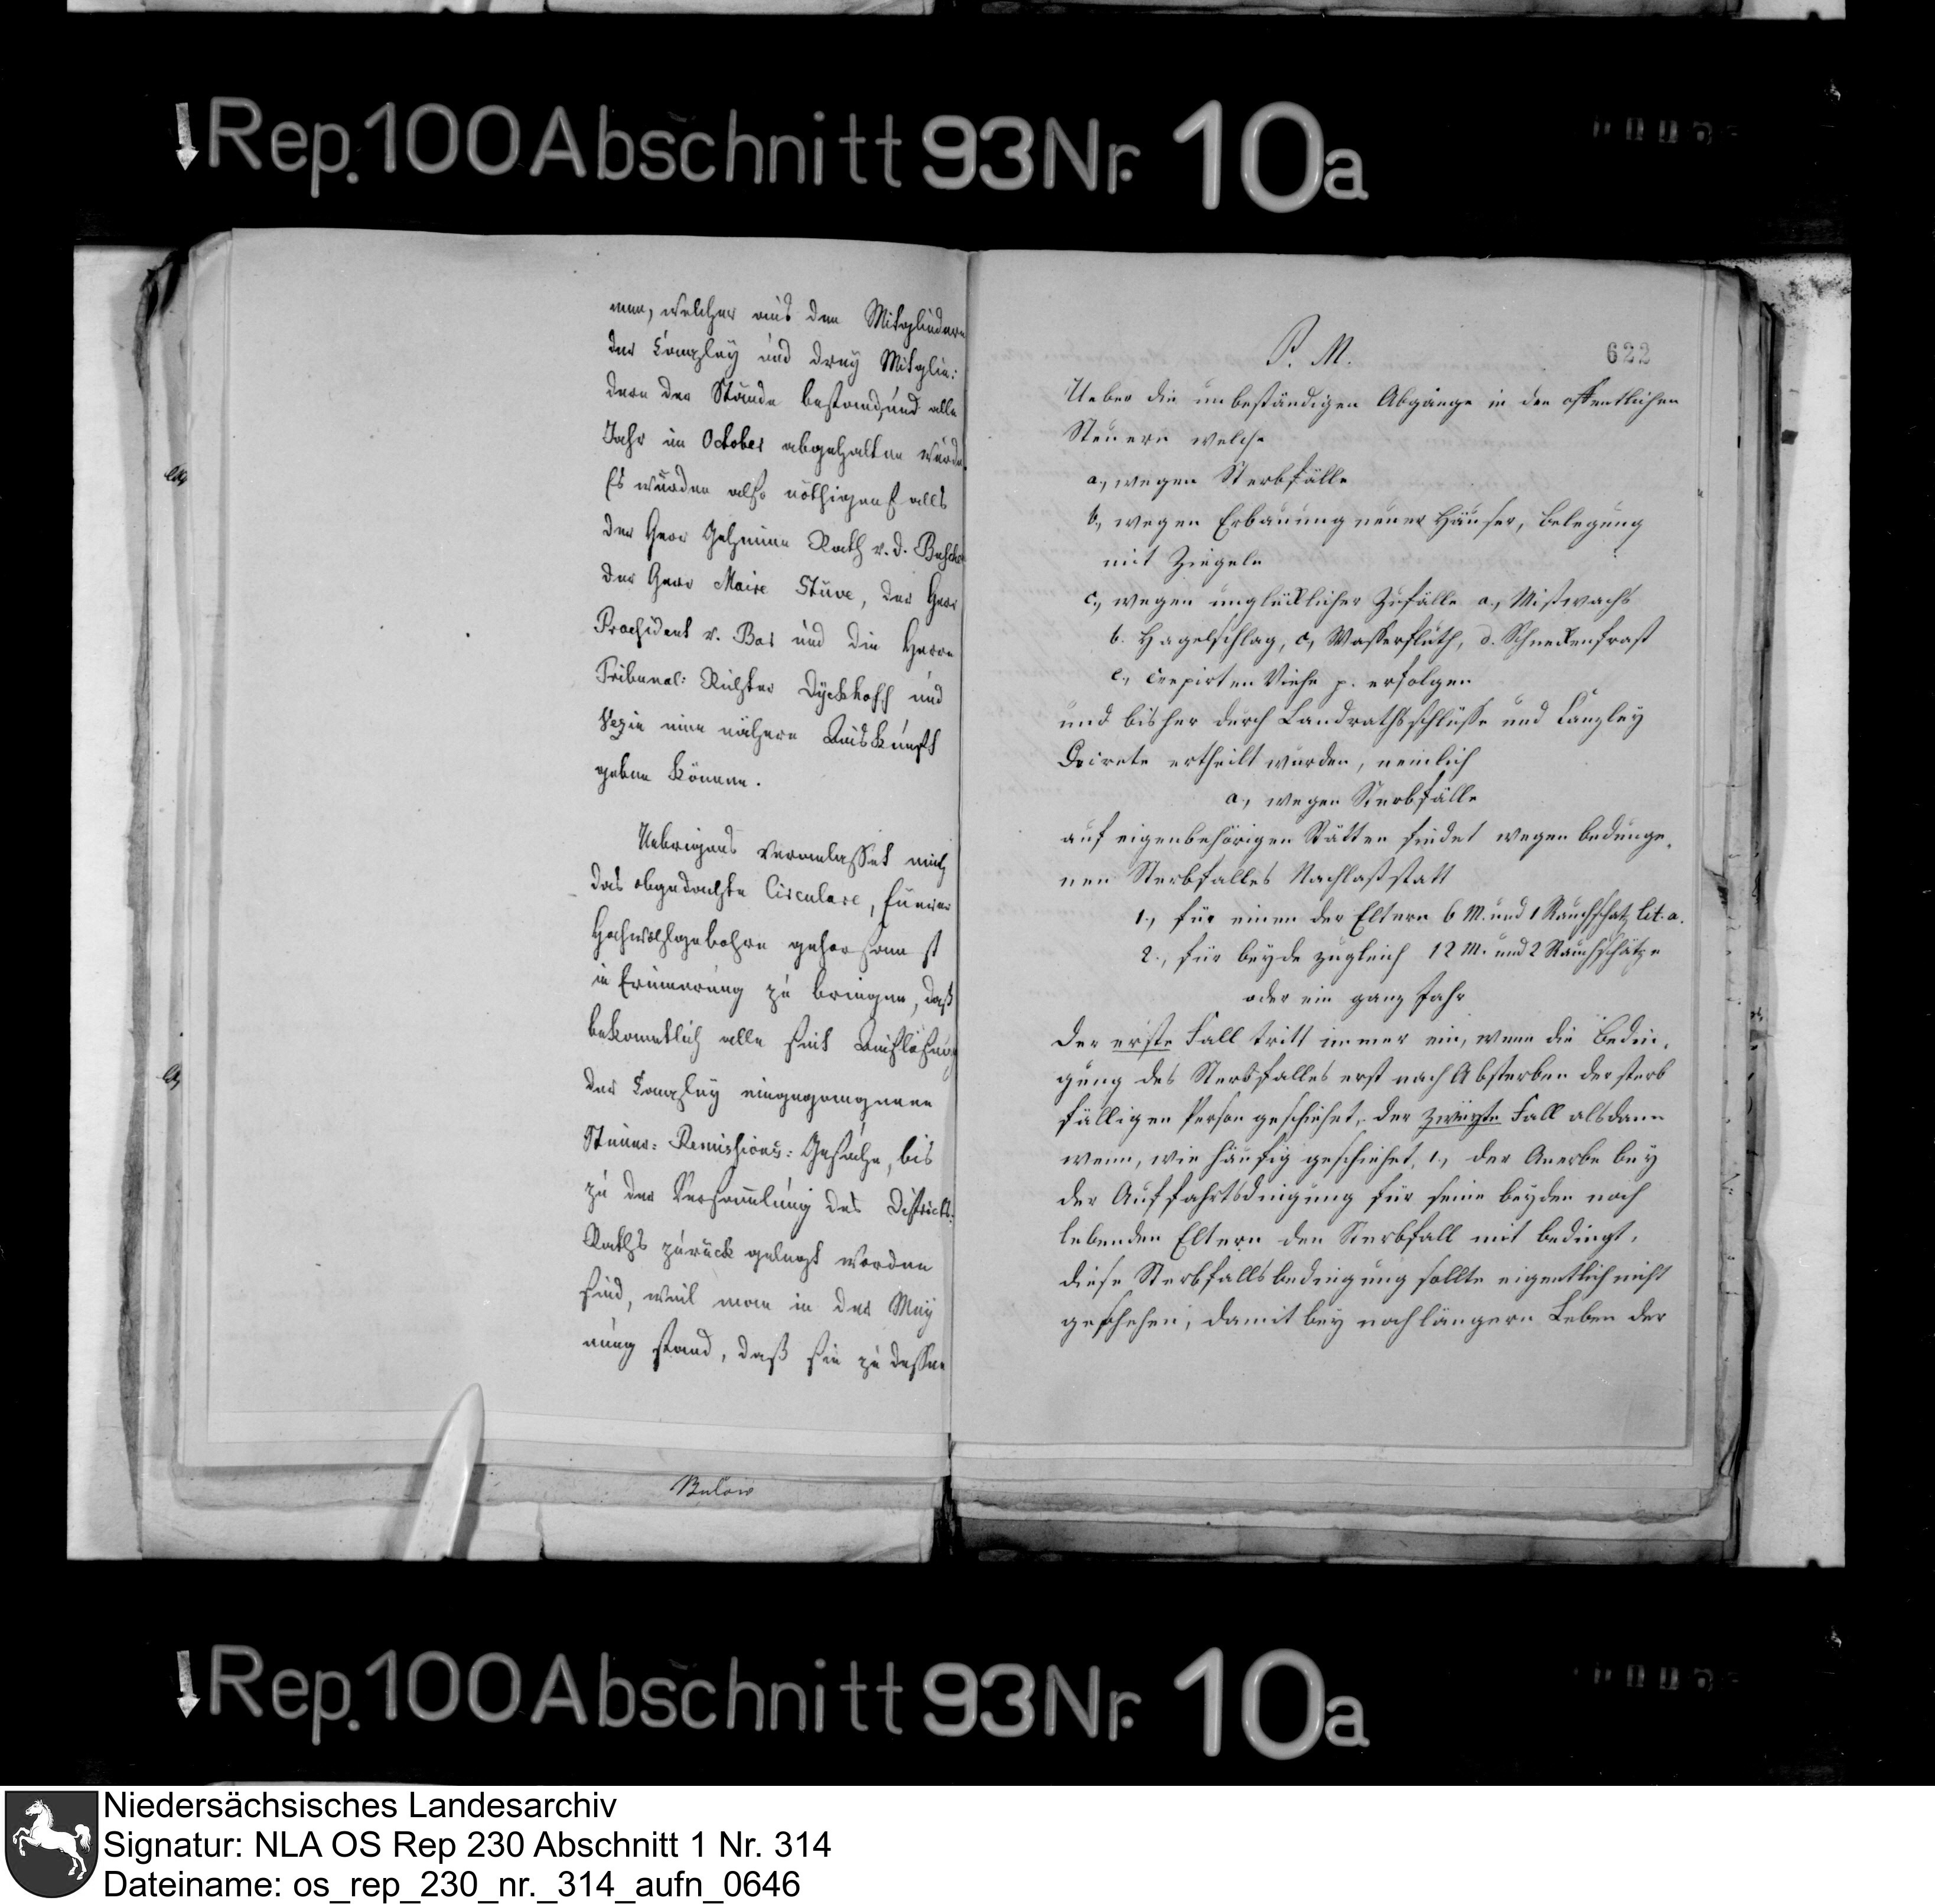 Rep. 100 Abschnitt 93 Nr. 10a
men, welcher aus den Mitgliedern
der Canzley und drey Mitglie:
dern der Stände bestand, und alle
Jahr im October abgehalten wurde.
Es würden also nöthigenfalls
der Herr Geheime Rath v. d. Bussche
der Herr Maire Stüve, der Herr
Praesident v. Bar und die Herrn
Tribunal: Richter Dyckhoff und
Vezin eine nähere Auskunft
geben können.
Uebrigens veranlasset mich
das obgedachte Circulare, Euerer
Hochwohlgebohrn gehorsamst
in Erinnerung zu bringen, daß
bekanntlich alle seit Auflösung
der Canzley eingegangenen
Steuer: Remissions: Gesuche, bis
zu der Versammlung des Districts:
Raths zurück gelegt worden
sind, weil man in der Mey
nung stand, daß sie zu dessen
Bulow
P. M.
622
Ueber die unbeständigen Abgänge in den öffentlichen
Steuern welche
a., wegen Sterbfälle
b., wegen Erbauung neuer Häuser, Belegung
mit Ziegeln
c., wegen unglücklicher Zufälle a., Mißwachs
b. Hagelschlag, c, Wasserfluth, d. Schneckenfraß
e., crepirten Viehe p. erfolgen
und bisher durch Landrathsschlüsse und Canzley
Decrete ertheilt wurden, nemlich
a., wegen Sterbfälle
auf eigenbehörigen Stätten findet wegen bedunge,
nen Sterbfalles Nachlaß statt
1., für einen der Eltern 6 M. und 1 Rauchschatz lit. a.
2., für beyde zugleich 12 M. und 2 Rauchschätze
oder ein ganz Jahr
Der erste Fall tritt immer ein, wenn die Bedin,
gung des Sterbfalles erst nach Absterben der sterb
fälligen Person geschiehet, der zweyte Fall alsdann
wenn, wie häufig geschiehet, 1., der Anerbe bey
der Auffahrtsdingung für seine beyden noch
lebenden Eltern den Sterbfall mit bedingt,
diese Sterbfallsbedingung sollte eigentlich nicht
geschehen, damit bey noch längern Leben der
Rep. 100 Abschnitt 93 Nr. 10a
Niedersächsisches Landesarchiv
Signatur: NLA OS Rep 230 Abschnitt 1 Nr. 314
Dateiname: os_rep_230_nr._314_aufn_0646